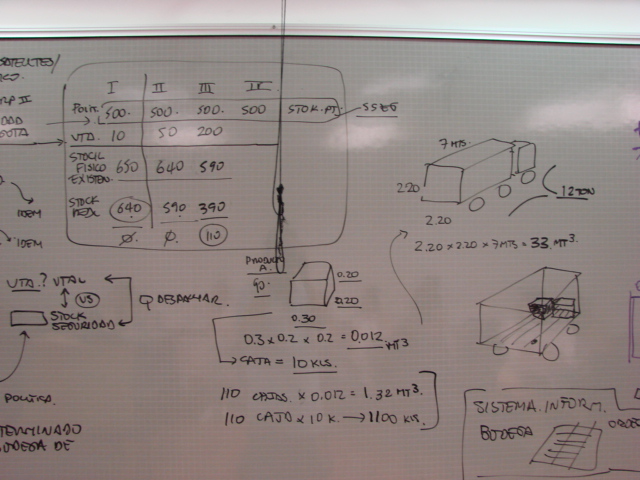 I II III IV
POLIT. 500. 500. 500. 500 STOK. PT. SSEG
VTA. 10 50 200
STOCK
FISICO 650 640 590
EXISTEN.
STOCK
REAL 640 590 390
Ø. Ø. 110
IDEM
IDEM
VTA.? VTAL
VS
STOCK
SEGURIDAD
Q DESPACHAR.
POLITICA.
TERMINADO
BODEGA DE
PRODUCTO
A.
90.
0.20
0.20
0.30
0.3 x 0.2 x 0.2 = 0,012 MT3
CAJA = 10 KLS.
110 CAJAS. x 0.012 = 1.32 MT3.
110 CAJA x 10 K. → 1100 KLS.
7 MTS.
2.20
2.20
12 TON
2.20 x 2.20 x 7 MTS = 33. MT3.
SISTEMA. INFORM.
BODEGA